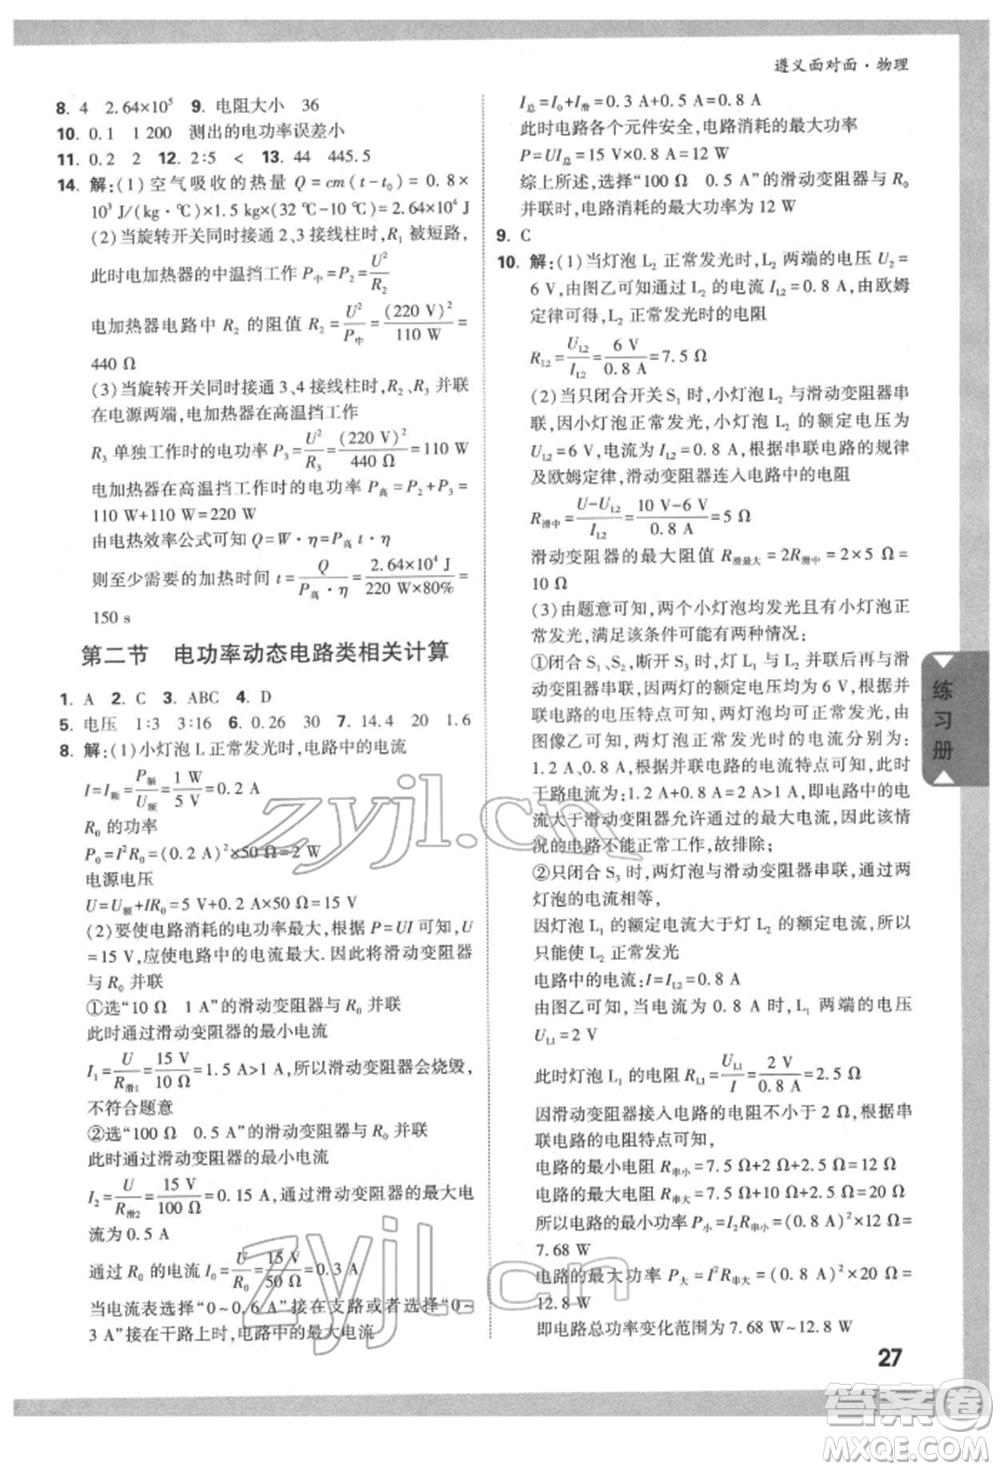 遵义面对面·物理
8. 4 2.64×10⁵ 9. 电阻大小 36
10. 0.1 1 200 测出的电功率误差小
11. 0.2 2 12. 2:5 < 13. 44 445.5
14. 解:(1)空气吸收的热量 Q=cm(t-t₀)=0.8×
10³ J/(kg·℃)×1.5 kg×(32 ℃-10 ℃)=2.64×10⁴ J
(2)当旋转开关同时接通2、3接线柱时,R₁ 被短路,
此时电加热器的中温挡工作 P中=P₂=U²/R₂
电加热器电路中 R₂ 的阻值 R₂=U²/P中=(220 V)²/110 W=
440 Ω
(3)当旋转开关同时接通3、4接线柱时,R₂、R₃ 并联
在电源两端,电加热器在高温挡工作
R₃ 单独工作时的电功率 P₃=U²/R₃=(220 V)²/440 Ω=110 W
电加热器在高温挡工作时的电功率 P高=P₂+P₃=
110 W+110 W=220 W
由电热效率公式可知 Q=W·η=P高tη
则至少需要的加热时间 t=Q/(P高·η)=2.64×10⁴ J/(220 W×80%)=
150 s
第二节 电功率动态电路类相关计算
1. A 2. C 3. ABC 4. D
5. 电压 1:3 3:16 6. 0.26 30 7. 14.4 20 1.6
8. 解:(1)小灯泡 L 正常发光时,电路中的电流
I=I额=P额/U额=1 W/5 V=0.2 A
R₀ 的功率
P₀=I²R₀=(0.2 A)²×50 Ω=2 W
电源电压
U=U额+IR₀=5 V+0.2 A×50 Ω=15 V
(2)要使电路消耗的电功率最大,根据 P=UI 可知,U
=15 V,应使电路中的电流最大。因此,滑动变阻器
与 R₀ 并联
①选“10 Ω 1 A”的滑动变阻器与 R₀ 并联
此时通过滑动变阻器的最小电流
I₁=U/R滑1=15 V/10 Ω=1.5 A>1 A,所以滑动变阻器会烧毁,
不符合题意
②选“100 Ω 0.5 A”的滑动变阻器与 R₀ 并联
此时通过滑动变阻器的最小电流
I₂=U/R滑2=15 V/100 Ω=0.15 A,通过滑动变阻器的最大电
流为 0.5 A
通过 R₀ 的电流 I₀=U/R₀=15 V/50 Ω=0.3 A
当电流表选择“0~0.6 A”接在支路或者选择“0~
3 A”接在干路上时,电路中的最大电流
I总=I₀+I滑=0.3 A+0.5 A=0.8 A
此时电路各个元件安全,电路消耗的最大功率
P=UI总=15 V×0.8 A=12 W
综上所述,选择“100 Ω 0.5 A”的滑动变阻器与 R₀
并联时,电路消耗的最大功率为 12 W
9. C
10. 解:(1)当灯泡 L₂ 正常发光时,L₂ 两端的电压 U₂=
6 V,由图乙可知通过 L₂ 的电流 I_L2=0.8 A,由欧姆
定律可得,L₂ 正常发光时的电阻
R_L2=U_L2/I_L2=6 V/0.8 A=7.5 Ω
(2)当只闭合开关 S₁ 时,小灯泡 L₂ 与滑动变阻器串
联,因小灯泡正常发光,小灯泡 L₂ 的额定电压为
U_L2=6 V,电流为 I_L2=0.8 A,根据串联电路的规律
及欧姆定律,滑动变阻器连入电路中的电阻
R滑中=(U-U_L2)/I_L2=(10 V-6 V)/0.8 A=5 Ω
滑动变阻器的最大阻值 R滑最大=2R滑中=2×5 Ω=
10 Ω
(3)由题意可知,两个灯泡均发光且有小灯泡正常
发光,满足该条件可能有两种情况:
①闭合 S₁、S₂,断开 S₃ 时,灯 L₁ 与 L₂ 并联后再与滑
动变阻器串联,因两灯的额定电压均为 6 V,根据并
联电路的电压特点可知,两灯均能正常发光,由
图像乙可知,两灯泡正常发光时的电流分别为
1.2 A、0.8 A,根据并联电路的电流特点可知,此时
干路电流为:1.2 A+0.8 A=2 A>1 A,即电路中的电
流大于滑动变阻器允许通过的最大电流,故这种情
况的电路不能正常工作,故排除;
②只闭合 S₃ 时,两灯泡与滑动变阻器串联,通过两
灯泡的电流相等,
因灯泡 L₁ 的额定电流大于灯 L₂ 的额定电流,所以
只能是 L₂ 正常发光
电路中的电流:I=I_L2=0.8 A
由图乙可知,当电流为 0.8 A 时,L₁ 两端的电压
U_L1=2 V
此时灯泡 L₁ 的电阻 R_L1=U_L1/I=2 V/0.8 A=2.5 Ω
因滑动变阻器接入电路的电阻不小于 2 Ω,根据串
联电路的电阻特点可知,
电路的最小电阻 R串小=7.5 Ω+2 Ω+2.5 Ω=12 Ω
电路的最大电阻 R串大=7.5 Ω+10 Ω+2.5 Ω=20 Ω
所以电路的最小功率 P小=I₂R串小=(0.8 A)²×12 Ω=
7.68 W
电路的最大功率 P大=I²R串大=(0.8 A)²×20 Ω=
12.8 W
即电路总功率变化范围为 7.68 W~12.8 W
练习册
27
zyjl.cn
zyjl.cn
答案圈
MXQE.COM